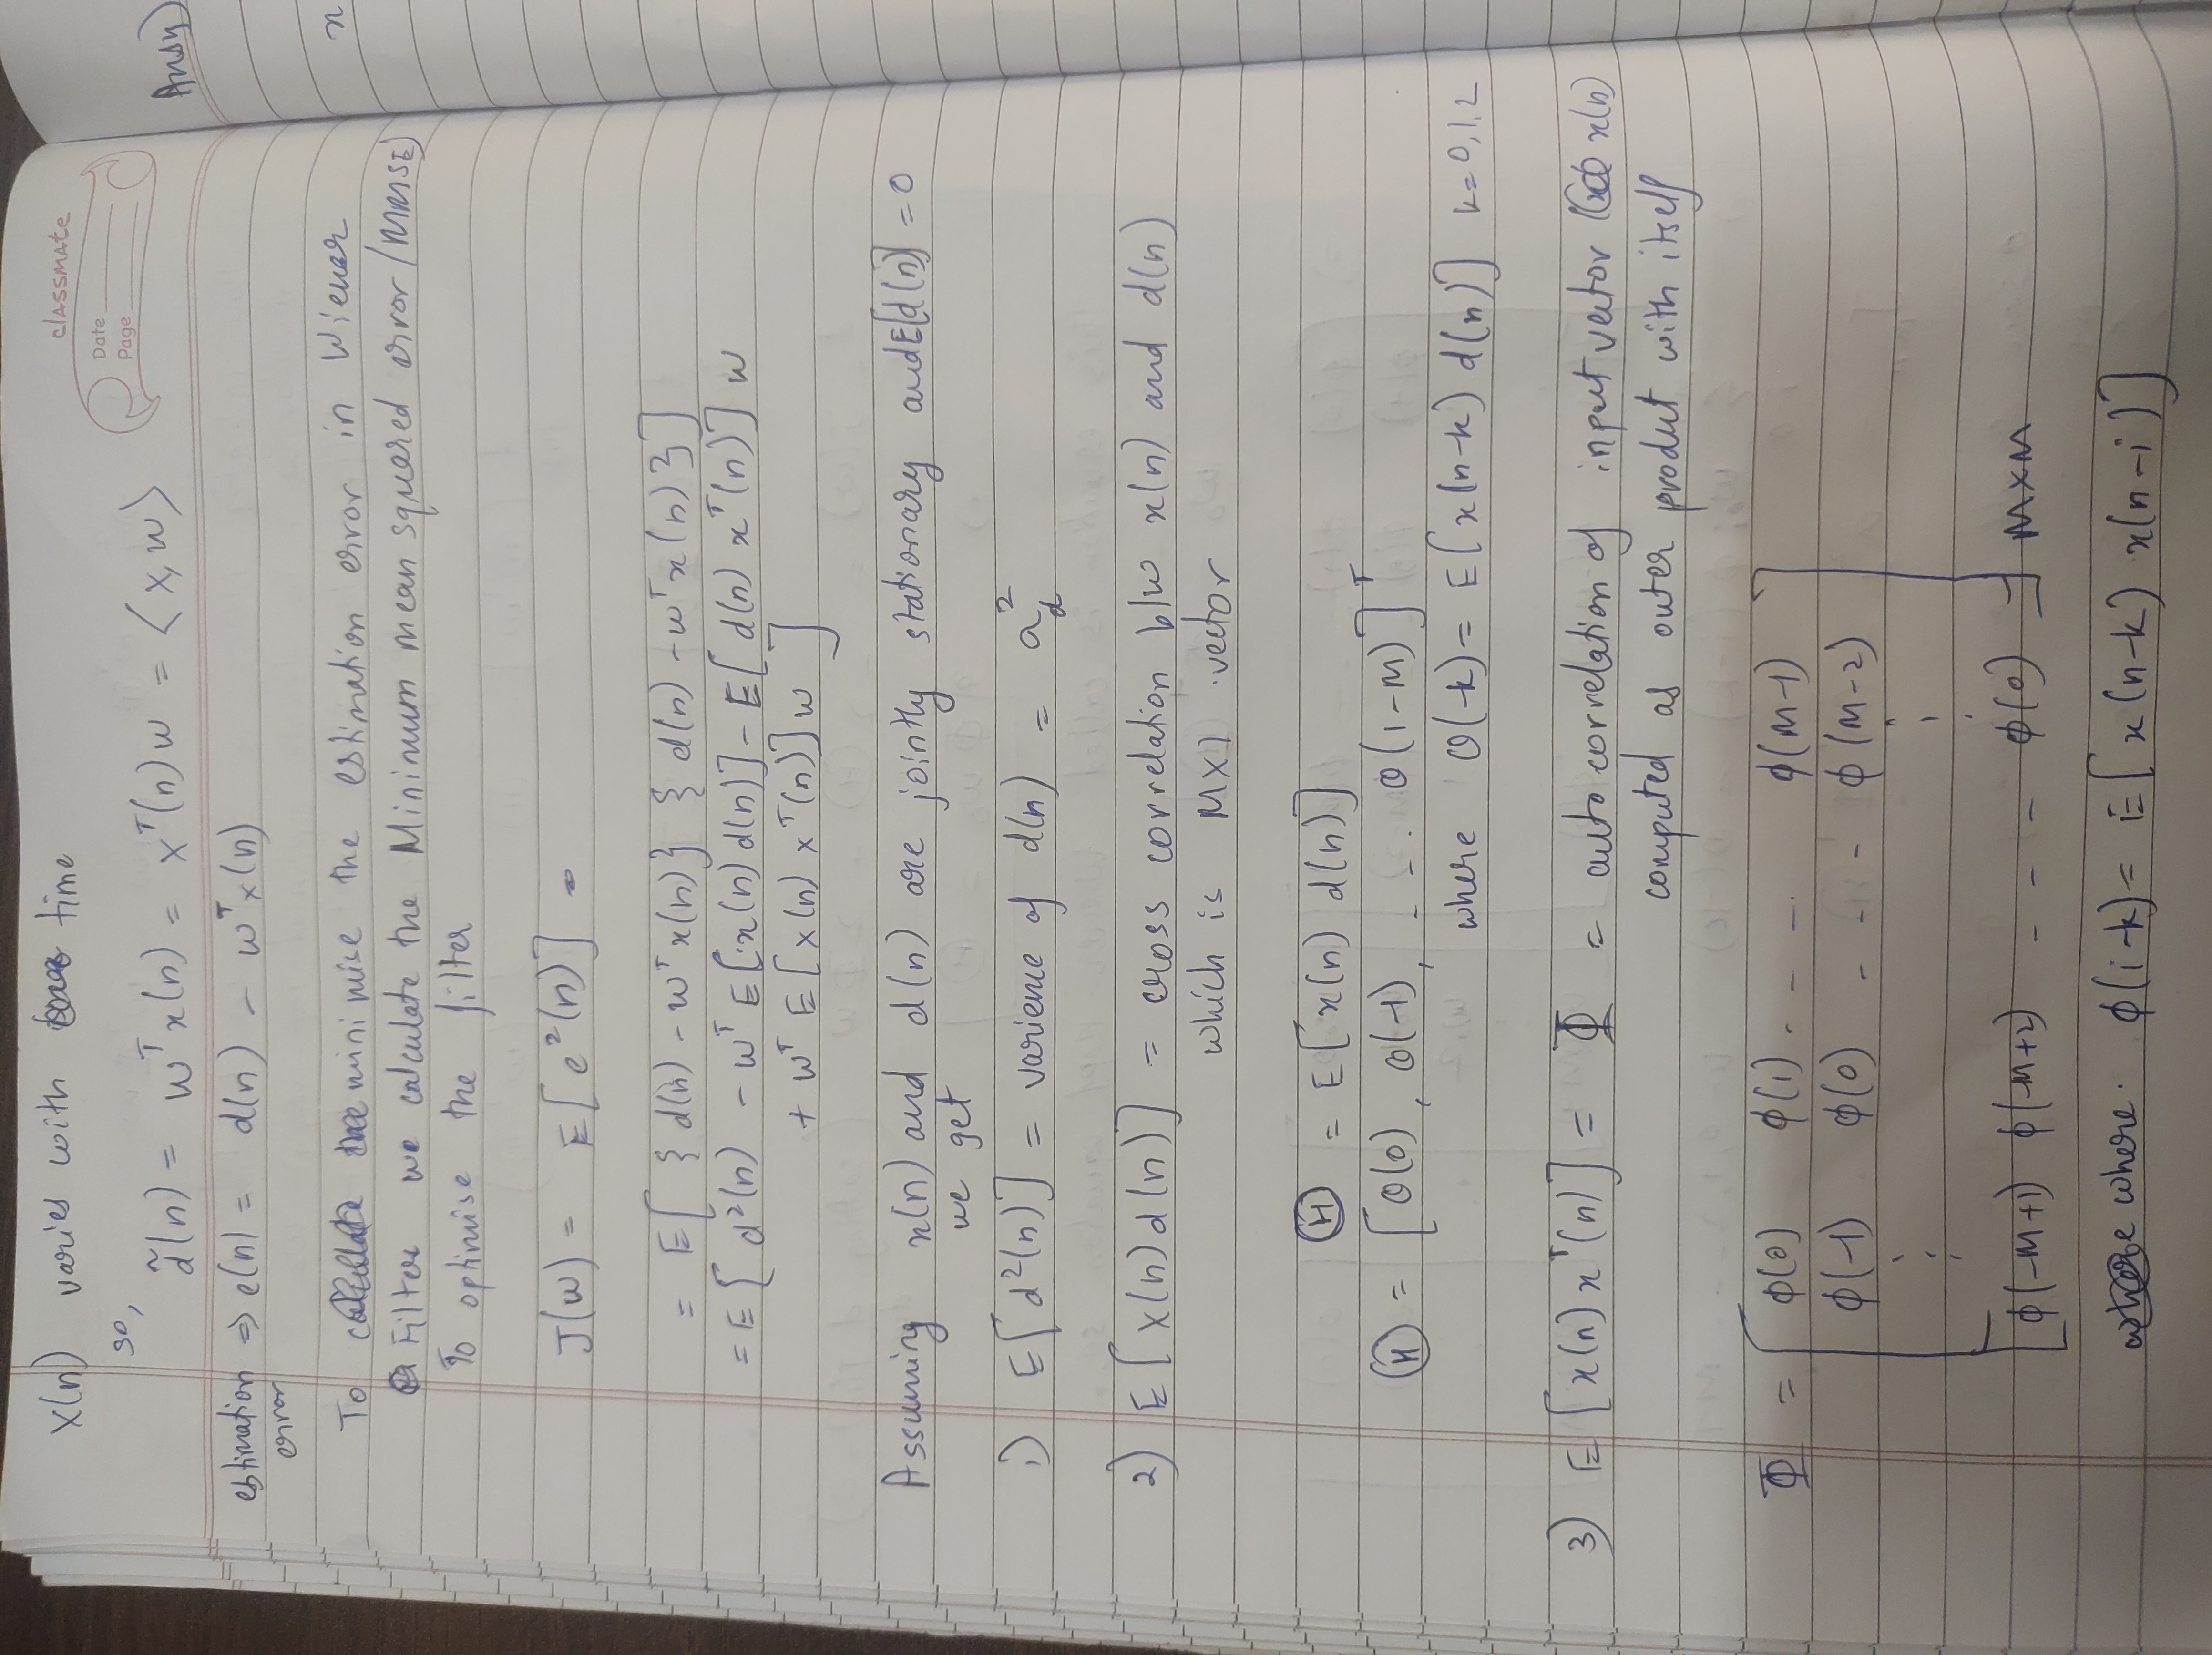 classmate
Date
Page
x(n) varies with time
so,
d̃(n) = wᵀx(n) = xᵀ(n)w = ⟨x,w⟩
estimation error ⇒ e(n) = d(n) - wᵀx(n)
To the minimise the estimation error in Wiener
Filter we calculate the Minimum mean squared error (MMSE)
To optimise the filter
J(w) = E[e²(n)] =
= E[{d(n) - wᵀx(n)} {d(n) - wᵀx(n)}]
= E[d²(n) - wᵀE[x(n)d(n)] - E[d(n)xᵀ(n)]w
+ wᵀE[x(n)xᵀ(n)]w]
Assuming x(n) and d(n) are jointly stationary and E[d(n)] = 0
we get
1) E[d²(n)] = varience of d(n) = a_d²
2) E[x(n)d(n)] = cross correlation b/w x(n) and d(n)
which is M×1 vector
Ⓗ = E[x(n) d(n)]
Ⓗ = [Θ(0), Θ(-1), - - . Θ(1-M)]ᵀ
where Θ(-k) = E[x(n-k) d(n)] k=0,1,2
3) E[x(n)xᵀ(n)] = Φ = auto correlation of input vector x(n)
computed as outer product with itself
Φ = [ϕ(0) ϕ(1) . - - . ϕ(M-1)
ϕ(-1) ϕ(0) - - - ϕ(M-2)
⋮ ⋮
ϕ(-M+1) ϕ(-M+2) - - - ϕ(0)] M×M
where. ϕ(i-k) = E[x(n-k) x(n-i)]
Ans
x